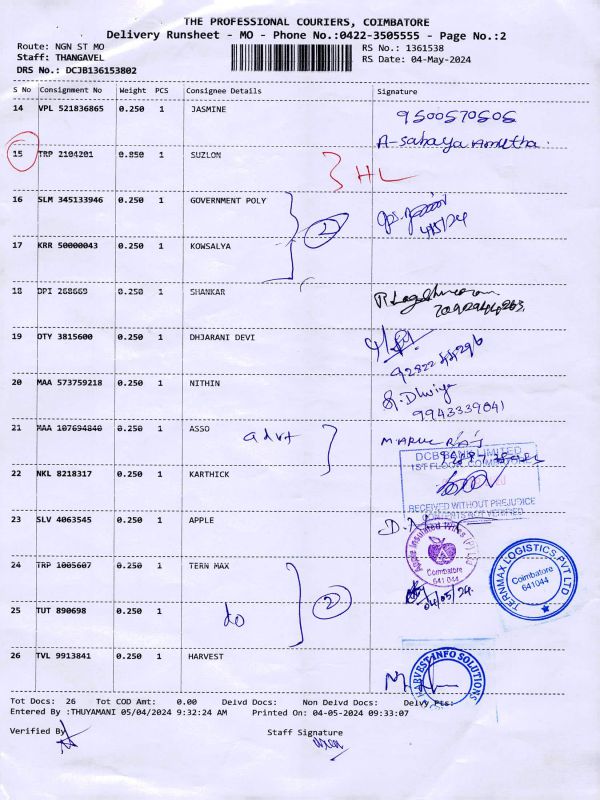 THE PROFESSIONAL COURIERS, COIMBATORE
Delivery Runsheet - MO - Phone No.:0422-3505555 - Page No.:2
Route: NGN ST MO
RS No.: 1361538
Staff: THANGAVEL
RS Date: 04-May-2024
DRS No.: DCJB136153802
S No Consignment No Weight PCS Consignee Details Signature
14 VPL 521836865 0.250 1 JASMINE 9500570505
A-Sahaya Amutha.
15 TRP 2104201 0.850 1 SUZLON HL
16 SLM 345133946 0.250 1 GOVERNMENT POLY 2
4/5/24
17 KRR 50000043 0.250 1 KOWSALYA
18 DPI 268669 0.250 1 SHANKAR
19 OTY 3815600 0.250 1 DHJARANI DEVI
20 MAA 573759218 0.250 1 NITHIN
9943339041
21 MAA 107694840 0.250 1 ASSO advt
DCB BANK LIMITED
1ST FLOOR, COIMBATORE
22 NKL 8218317 0.250 1 KARTHICK
RECEIVED WITHOUT PREJUDICE
CONTENTS NOT VERIFIED
23 SLV 4063545 0.250 1 APPLE
Apple Insulated Wires (P) Ltd
Coimbatore
641 044
24 TRP 1005607 0.250 1 TERN MAX
TERNMAX LOGISTICS PVT LTD
Coimbatore
641044
04/05/24.
25 TUT 890698 0.250 1 do 2
26 TVL 9913841 0.250 1 HARVEST
HARVEST INFO SOLUTIONS
Tot Docs: 26 Tot COD Amt: 0.00 Delvd Docs: Non Delvd Docs: Delvy Pts:
Entered By :THUYAMANI 05/04/2024 9:32:24 AM Printed On: 04-05-2024 09:33:07
Verified By Staff Signature